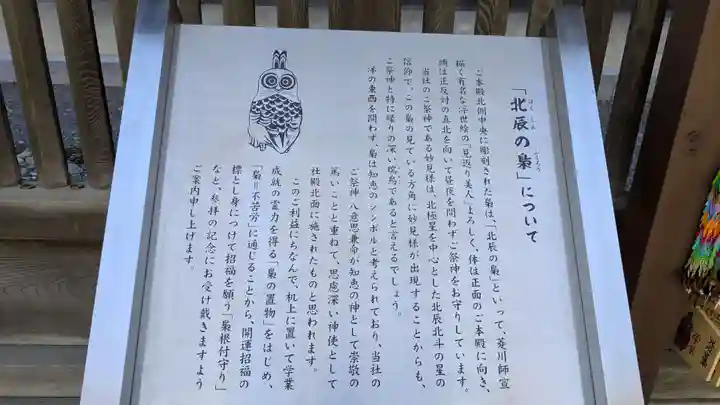 「北辰の梟」について
ほくしん
ふくろう
ご本殿北側中央に彫刻された梟は、「北辰の梟」といって、菱川師宣
描く有名な浮世絵の「見返り美人」よろしく、体は正面のご本殿に向き、
頭は正反対の真北を向いて昼夜を問わずご祭神をお守りしています。
当社のご祭神である妙見様は、北極星を中心とした北辰北斗の星の
信仰で、この梟の見ている方角に妙見様が出現することからも、
ご祭神と特に縁りの深い瑞鳥であると言えるでしょう。
洋の東西を問わず、梟は知恵のシンボルと考えられており、当社の
ご祭神 八意思兼命が知恵の神として崇敬の
篤いことと重ねて、思慮深い神使として
社殿北面に施されたものと思われます。
このご利益にちなんで、机上に置いて学業
成就の霊力を得る「梟の置物」をはじめ、
「梟＝不苦労」に通じることから、開運招福の
標とし身につけて招福を願う「梟根付守り」
など、参拝の記念にお受け戴きますよう
ご案内申し上げます。